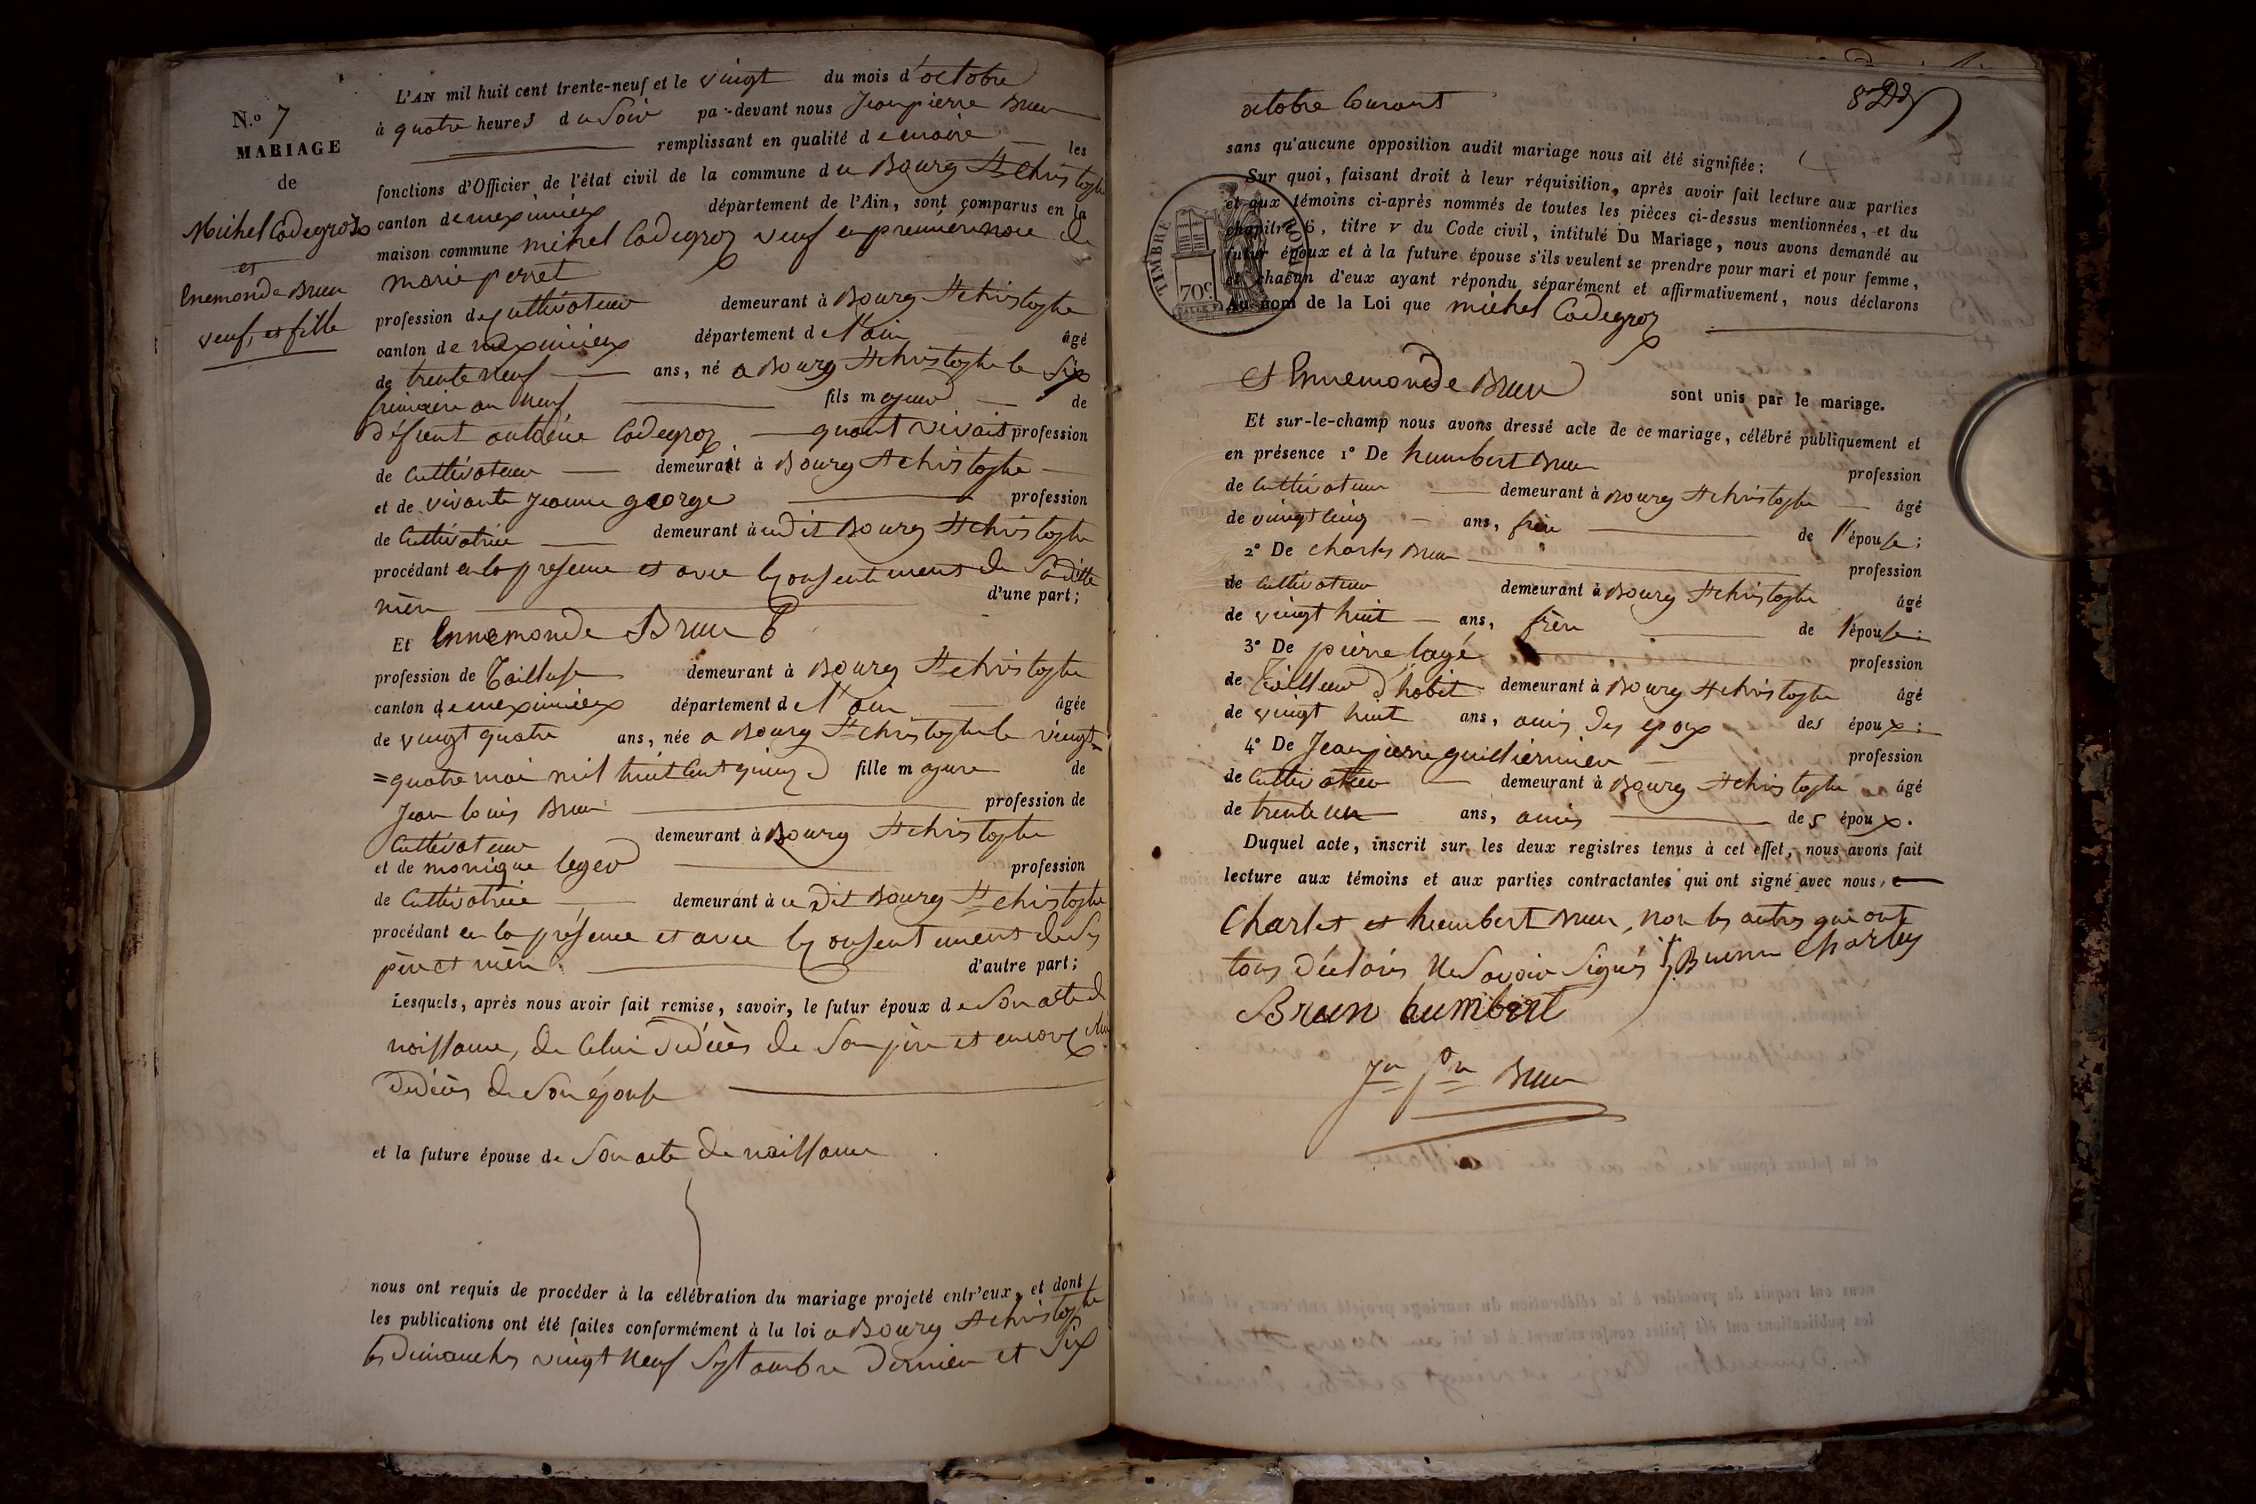 N.º 7
MARIAGE
de
Michel Cadegroz
et
Enemonde Brun
veuf, et fille
L'AN mil huit cent trente-neuf et le vingt du mois d'octobre
à quatre heures du soir par-devant nous Jeanpierre Brun
remplissant en qualité de maire les
fonctions d'Officier de l'état civil de la commune du Bourg St christophe
canton de meximieux département de l'Ain, sont comparus en la
maison commune michel Cadegroz veuf en premières noce de
marie perret
profession de cultivateur demeurant à Bourg St christophe
canton de meximieux département de l'ain âgé
de trente neuf ans, né a Bourg St christophe le six
frimaire an neuf fils majeur de
défunt antoine Cadegroz quant vivait profession
de cultivateur demeurait à Bourg St christophe
et de vivante Jeanne george profession
de cultivatrice demeurant audit Bourg St christophe
procédant en la presence et avec le consentement de saditte
mère d'une part;
Et Ennemonde Brun
profession de Tailleuse demeurant à Bourg St christophe
canton de meximieux département de l'ain âgée
de vingt quatre ans, née a Bourg St christophe le vingt
=quatre mai mil huit cent quinze fille majeure de
Jean louis Brun profession de
cultivateur demeurant à Bourg St christophe
et de monique leger profession
de cultivatrice demeurant audit Bourg St christophe
procédant en la présence et avec le consentement de ses
père et mère. d'autre part;
Lesquels, après nous avoir fait remise, savoir, le futur époux de son acte de
naissance, de celui dudécès de son père et encore celui
dudécès de son épouse
et la future épouse de son acte de naissance
nous ont requis de procéder à la célébration du mariage projeté entr'eux, et dont
les publications ont été faites conformément à la loi a Bourg St christophe
les dimanches vingt neuf septembre dernier et six
octobre courant
sans qu'aucune opposition audit mariage nous ait été signifiée:
Sur quoi, faisant droit à leur réquisition, après avoir fait lecture aux parties
et aux témoins ci-après nommés de toutes les pièces ci-dessus mentionnées, et du
chapitre 6, titre v du Code civil, intitulé Du Mariage, nous avons demandé au
futur époux et à la future épouse s'ils veulent se prendre pour mari et pour femme,
et chacun d'eux ayant répondu séparément et affirmativement, nous déclarons
Au nom de la Loi que michel Cadegroz
TIMBRE ROYAL
70c
et Ennemonde Brun sont unis par le mariage.
Et sur-le-champ nous avons dressé acte de ce mariage, célébré publiquement et
en présence 1º De humbert Brun profession
de cultivateur demeurant à Bourg St christophe âgé
de vingt cinq ans, frère de l'épouse;
2º De charles Brun profession
de cultivateur demeurant à Bourg St christophe âgé
de vingt huit ans, frère de l'épouse;
3º De pierre lagé profession
de Tailleur d'habit demeurant à Bourg St christophe âgé
de vingt huit ans, amis des epoux des époux;
4º De Jeanpierre guilliermier profession
de cultivateur demeurant à Bourg St christophe âgé
de trente un ans, amis des époux.
Duquel acte, inscrit sur les deux registres tenus à cet effet, nous avons fait
lecture aux témoins et aux parties contractantes qui ont signé avec nous,
Charles et humbert Brun, non les autres qui ont
tous déclarés ne savoir signés Brunn Charles
Brun humbert
Jn Pre Brun